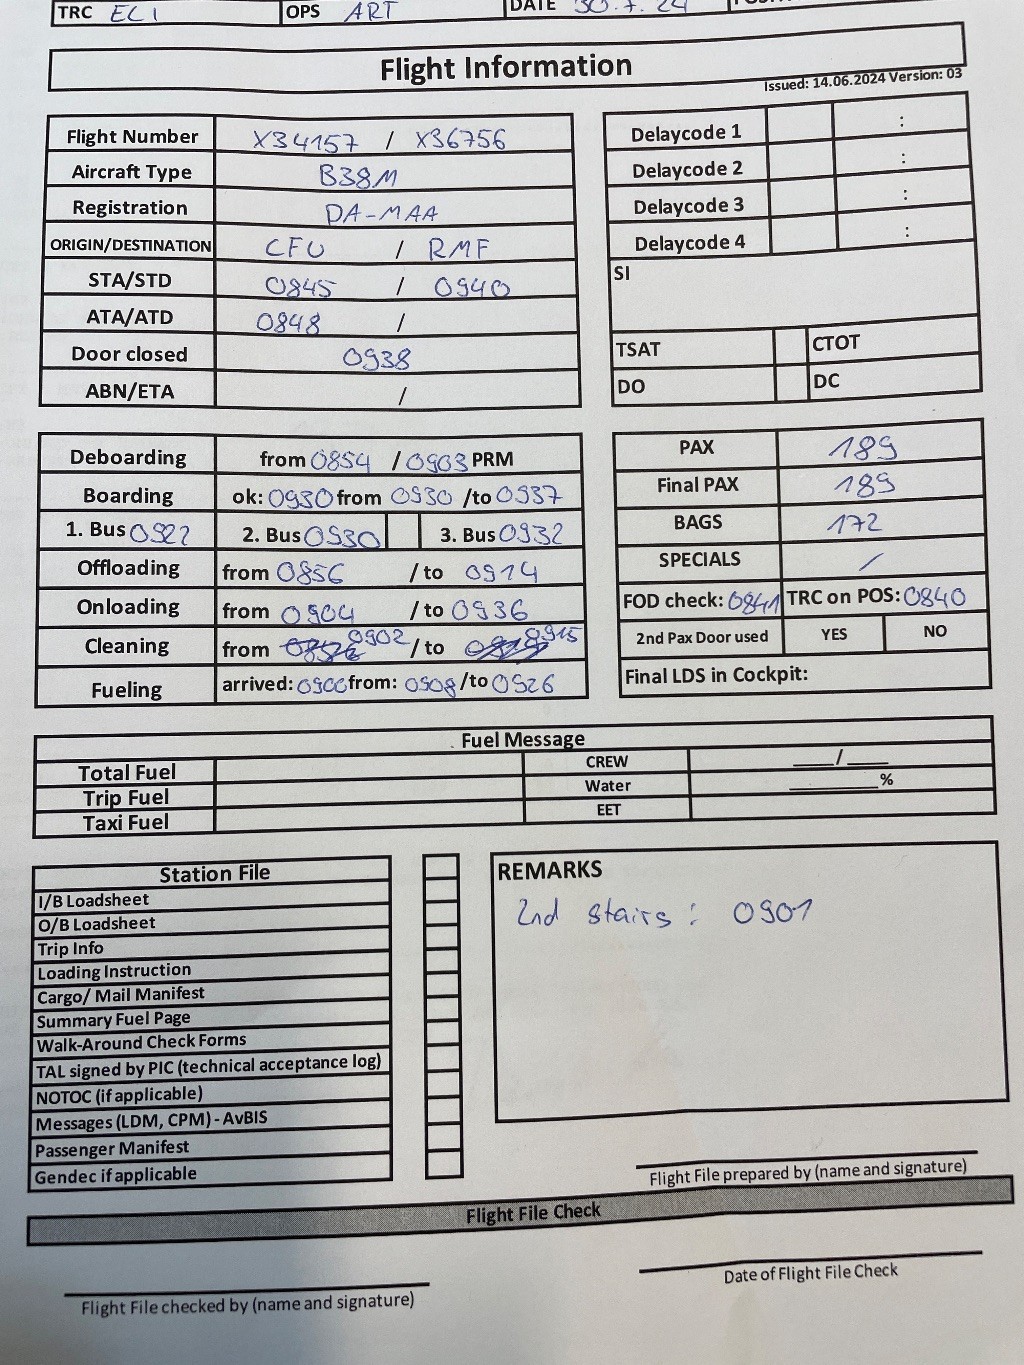 TRC ECI OPS ART DATE 30.7.24
Flight Information
Issued: 14.06.2024 Version: 03
Flight Number X34157 / X36756
Aircraft Type B38M
Registration DA-MAA
ORIGIN/DESTINATION CFU / RMF
STA/STD 0845 / 0940
ATA/ATD 0848 /
Door closed 0938
ABN/ETA /
Delaycode 1 :
Delaycode 2 :
Delaycode 3 :
Delaycode 4 :
SI
TSAT CTOT
DO DC
Deboarding from 0854 / 0903 PRM
Boarding ok: 0930 from 0930 /to 0937
1. Bus 0922 2. Bus 0930 3. Bus 0932
Offloading from 0856 / to 0914
Onloading from 0904 / to 0936
Cleaning from 0902 / to 0915
Fueling arrived: 0900 from: 0908 /to 0926
PAX 189
Final PAX 189
BAGS 172
SPECIALS /
FOD check: 0841 TRC on POS: 0840
2nd Pax Door used YES NO
Final LDS in Cockpit:
Fuel Message
Total Fuel CREW ___/___
Trip Fuel Water ________%
Taxi Fuel EET
Station File
I/B Loadsheet
O/B Loadsheet
Trip Info
Loading Instruction
Cargo/ Mail Manifest
Summary Fuel Page
Walk-Around Check Forms
TAL signed by PIC (technical acceptance log)
NOTOC (if applicable)
Messages (LDM, CPM) - AvBIS
Passenger Manifest
Gendec if applicable
REMARKS
2nd stairs: 0901
Flight File prepared by (name and signature)
Flight File Check
Flight File checked by (name and signature)
Date of Flight File Check